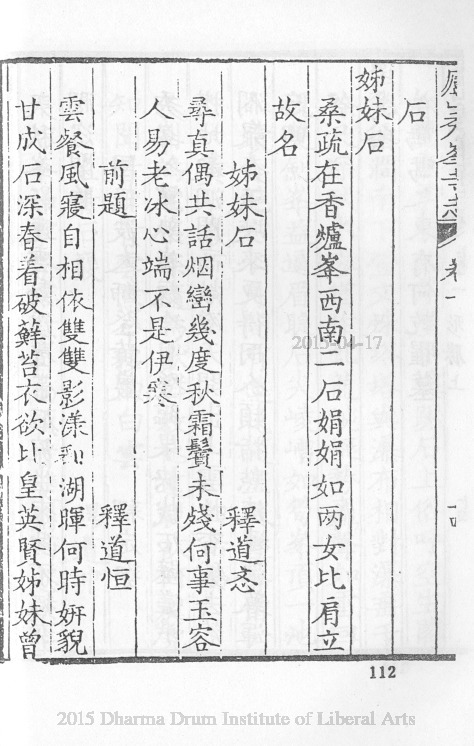 石
姊妹石
桑疏在香爐峯西南二石娟娟如两女比肩立
故名
姊妹石 釋道忞
尋真偶共話烟巒幾度秋霜鬢未殘何事玉容
人易老冰心端不是伊寒
前題 釋道恒
雲餐風寢自相依雙雙影漾湖暉何時妍貌
甘成石深春着破蘚苔衣欲比皇英賢姊妹曾
卷一
112
2015-04-17
2015 Dharma Drum Institute of Liberal Arts